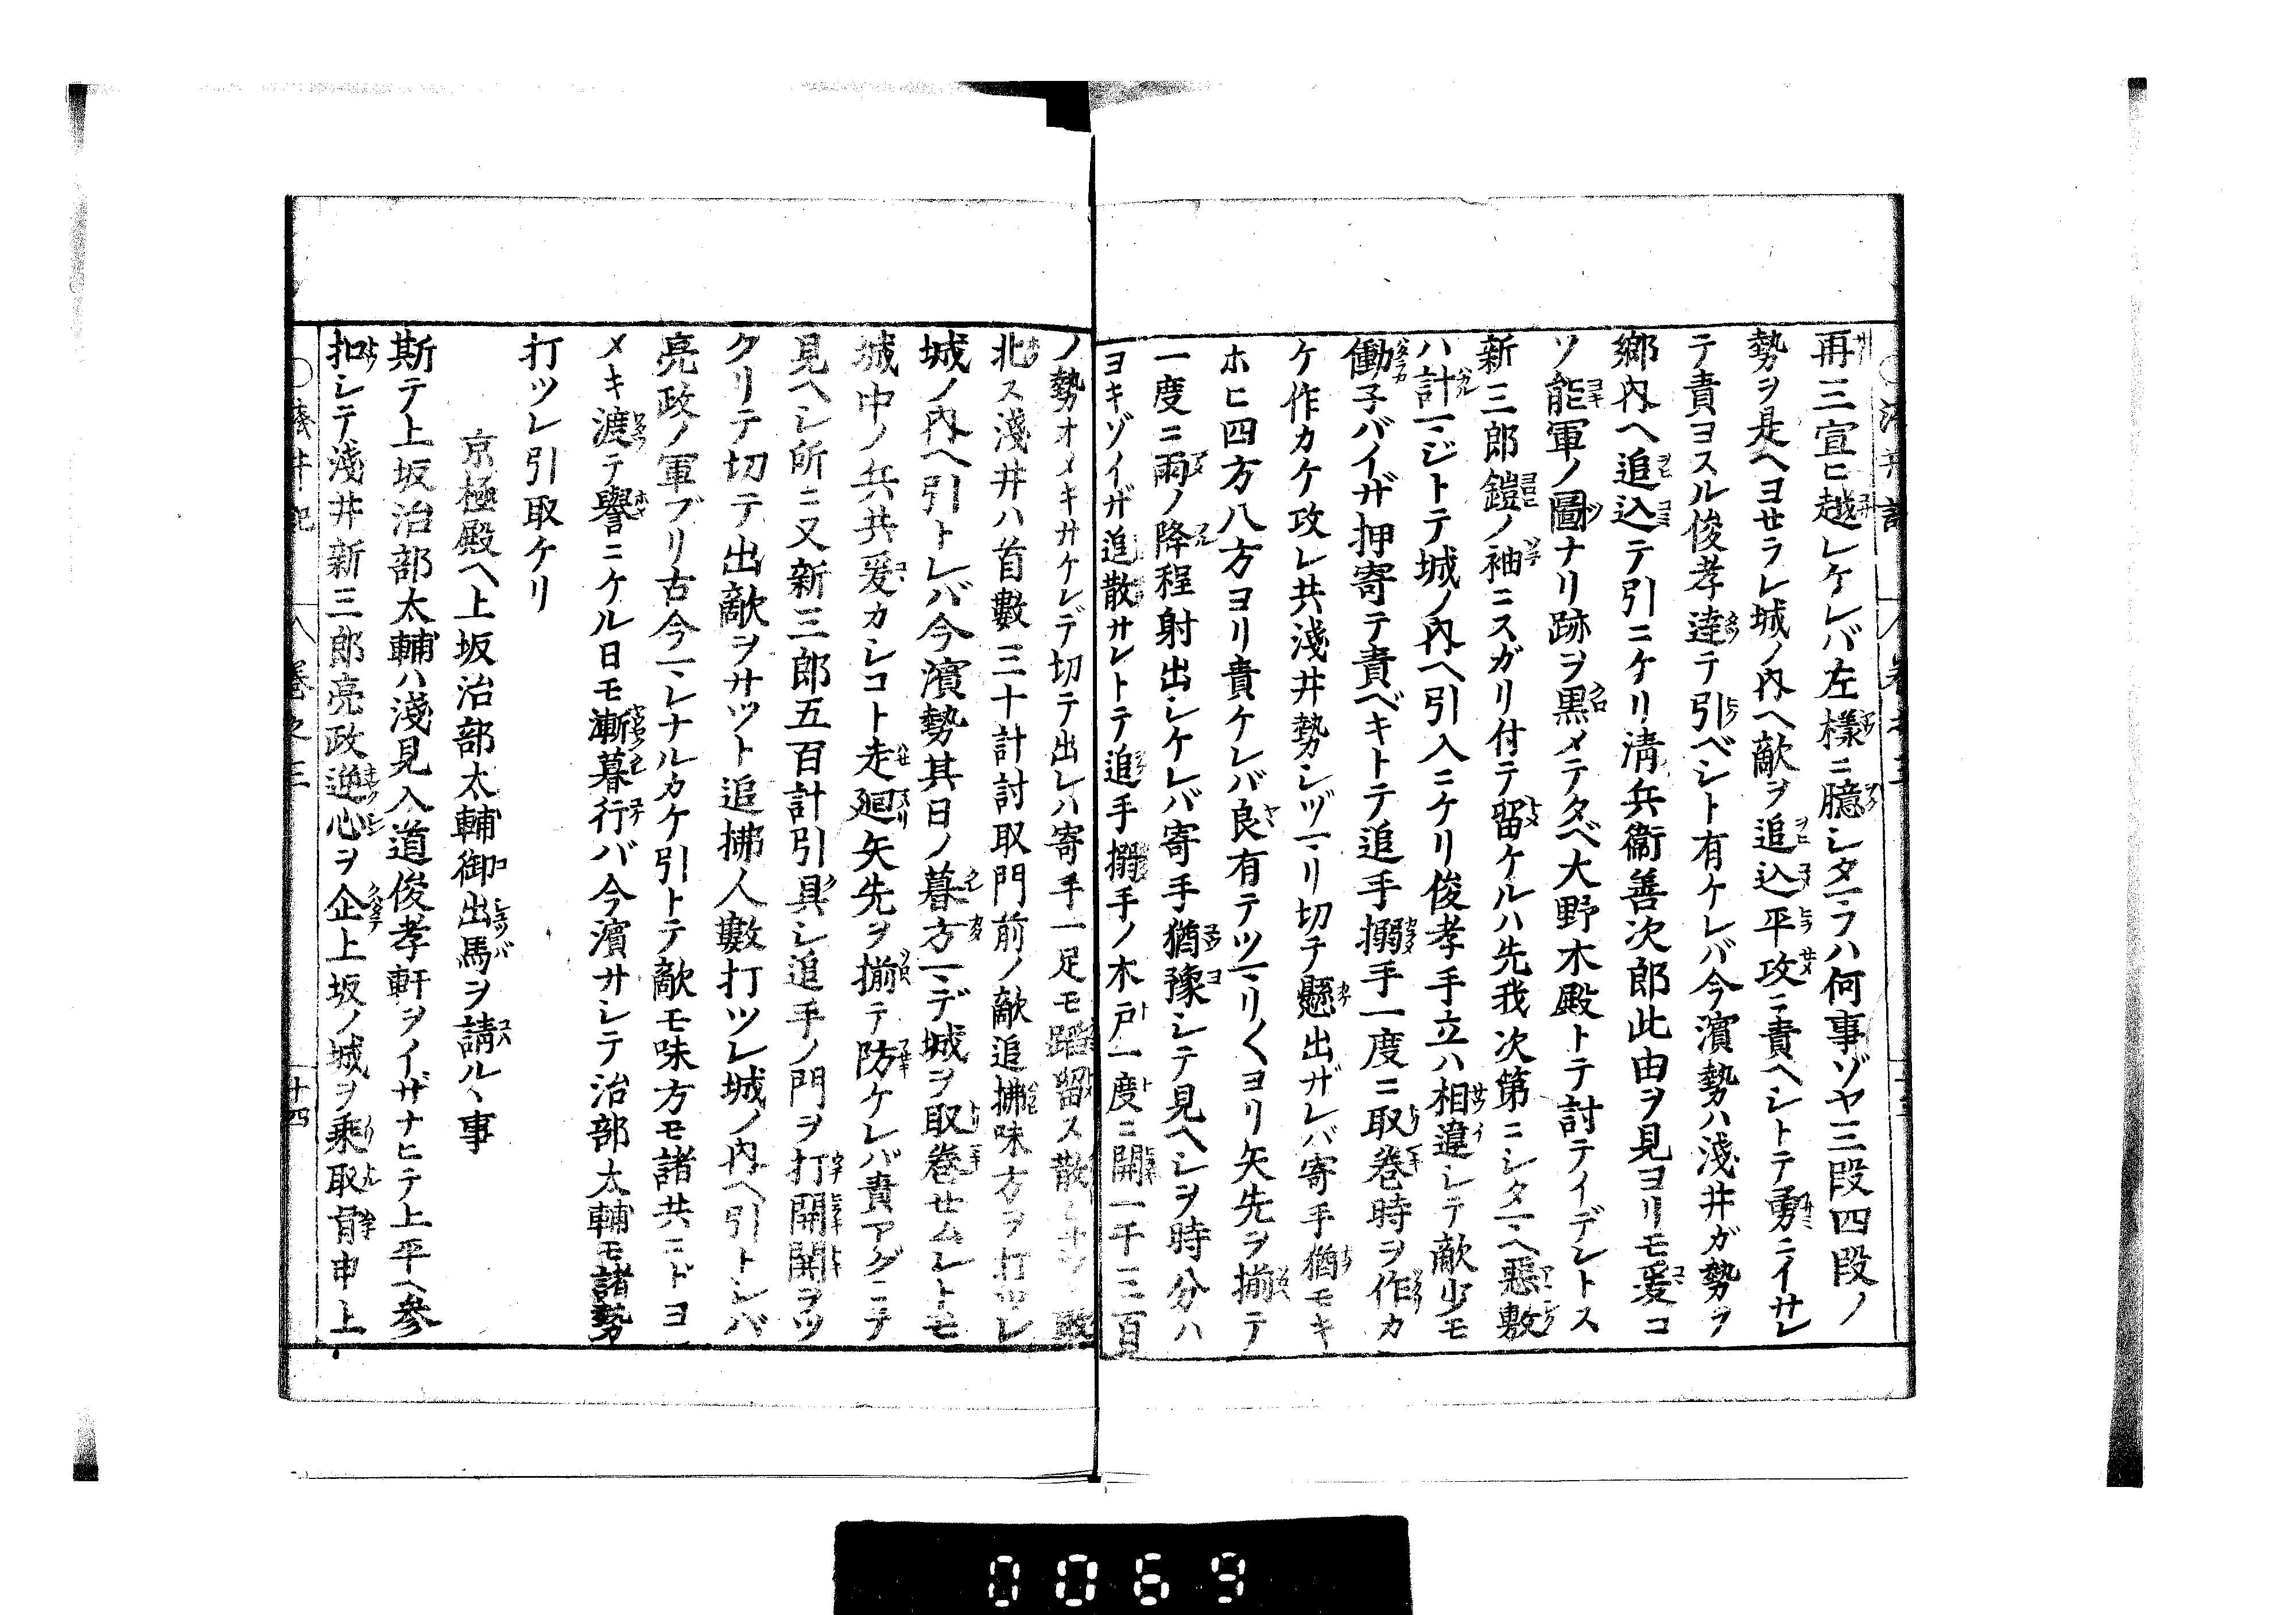 再三宣ヒ越レケレバ左樣ニ臆シタマフハ何事ゾヤ三段四段ノ
勢ヲ是ヘヨセラレ城ノ內ヘ敵ヲ追込平攻ニ責ヘシトテ勇ニイサレ
テ責ヨスル俊孝達テ引ベシト有ケレバ今濱勢ハ淺井ガ勢ヲ
鄕內ヘ追込テ引ニケリ淸兵衞善次郎此由ヲ見ヨリモ爰コ
ソ能軍ノ圖ナリ跡ヲ黑メテタベ大野木殿トテ討テイデントス
新三郎鎧ノ袖ニスガリ付テ留ケルハ先我次第ニシタマヘ惡敷
ハ計マジトテ城ノ內ヘ引入ニケリ俊孝手立ハ相違シテ敵少モ
働子バイザ押寄テ責ベキトテ追手搦手一度ニ取卷時ヲ作カ
ケ作カケ攻レ共淺井勢シヅマリ切テ懸出ザレバ寄手猶モキ
ホヒ四方八方ヨリ責ケレバ良有テツマリ〱ヨリ矢先ヲ揃テ
一度ニ雨ノ降程射出シケレバ寄手猶豫シテ見ヘシヲ時分ハ
ヨキゾイザ追散サレトテ追手搦手ノ木戸一度ニ開一千三百
ノ勢オメキサケンデ切テ出レハ寄手一足モ蹈留ス散
北ス淺井ハ首數三十計討取門前ノ敵追拂味方ヲ打ツレ
城ノ內ヘ引トレバ今濱勢其日ノ暮方マデ城ヲ取卷セムレトモ
城中ノ兵共爰カシコト走廻矢先ヲ揃テ防ケレバ責アグニテ
見ヘシ所ニ又新三郎五百計引具シ追手ノ門ヲ打開鬨ヲツ
クリテ切テ出敵ヲサツト追拂人數打ツレ城ノ內ヘ引トレバ
亮政ノ軍ブリ古今マレナルカケ引トテ敵モ味方モ諸共ニドヨ
メキ渡テ譽ニケル日モ漸暮行バ今濱サシテ治部太輔モ諸勢
打ツレ引取ケリ
京極殿ヘ上坂治部太輔御出馬ヲ請ル丶事
斯テ上坂治部太輔ハ淺見入道俊孝軒ヲイザナヒテ上平ヘ參
扣シテ淺井新三郎亮政逆心ヲ企上坂ノ城ヲ乘取旨申上
○淺井記 卷之三 十四
0069